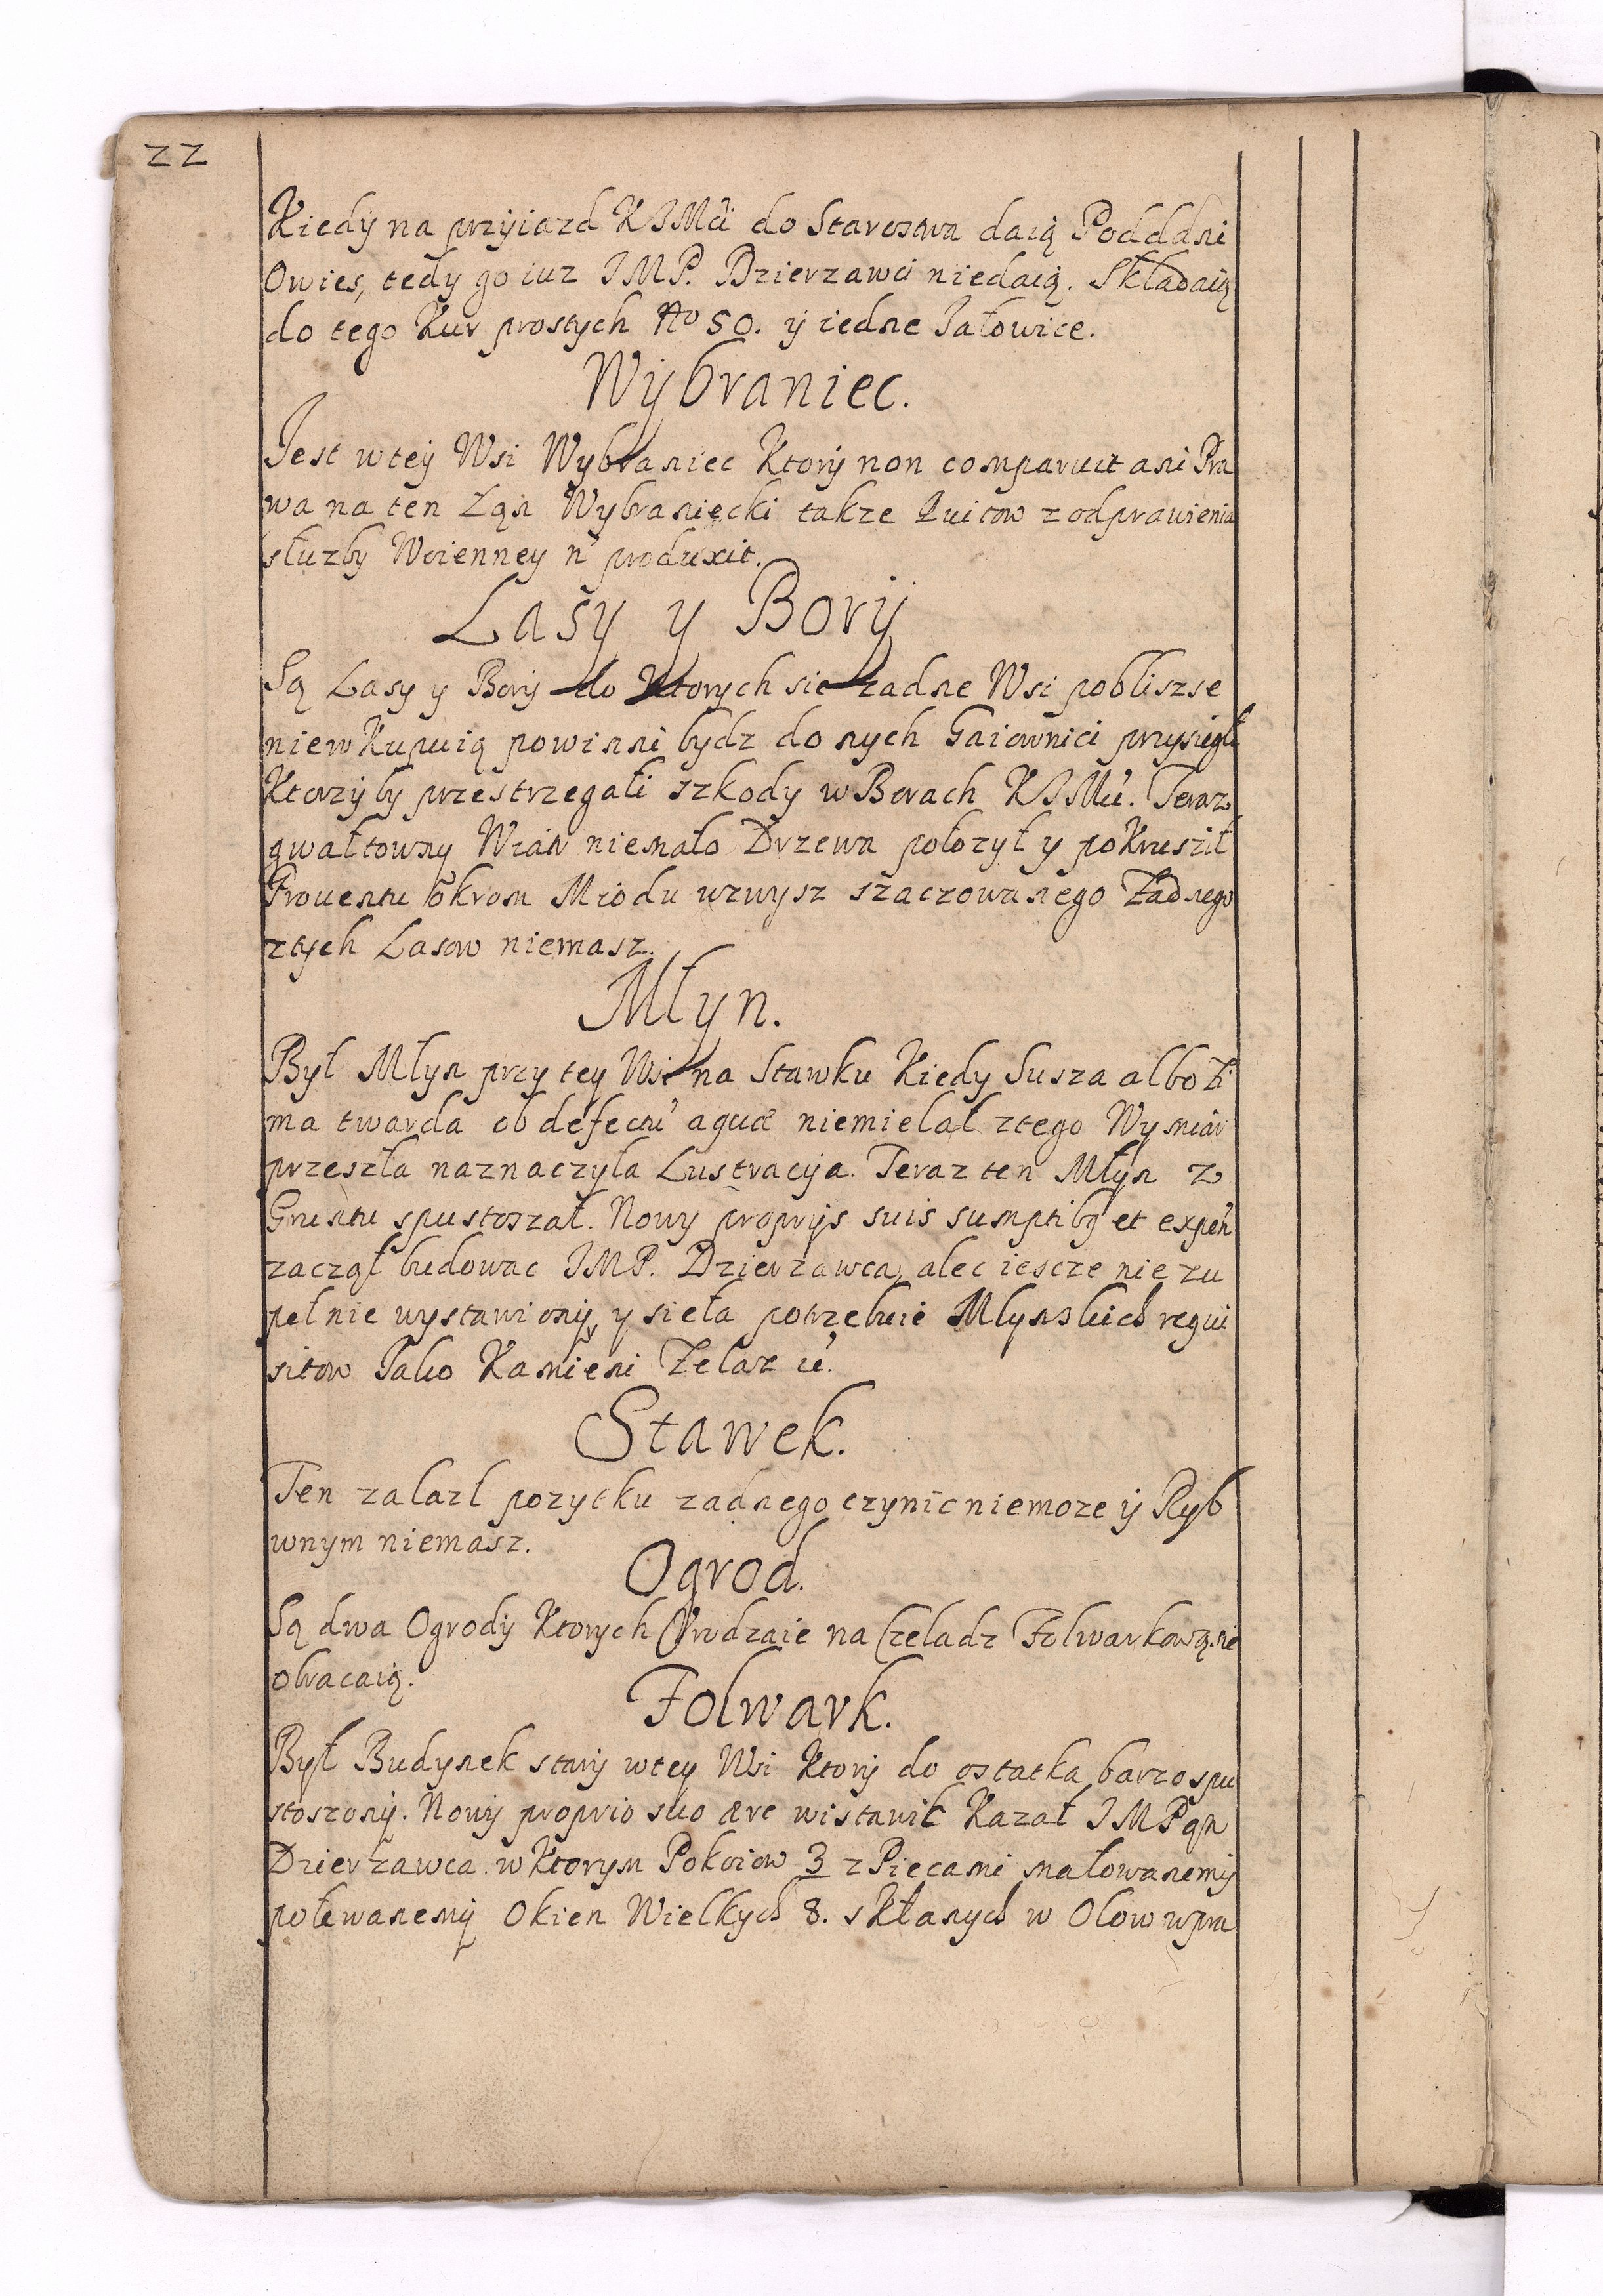 22
Kiedÿ na przÿiazd KJMći do Starczowa daią Podddni
Owies, tedy go iuz JMP. Dzierzawci niedaią. Składaią
do tego Kur prostych No 50. ÿ iedne Jałowice.
Wÿbraniec.
Jest wteÿ Wsi Wybraniec Ktorÿ non comparuit ani Pra
wa na ten Łąn Wybraniecki takze kwitow z odprawienia
słuzby Woienney n produxit.
Lasy y Borÿ
Są Lasy y Borÿ do Ktorych sie zadne Wsi pobliszse
niewkupuią powinni bydz do nych Gaiownici przysiegli
Ktorzÿ by przestrzegali szkody w Borach KJMći. Teraz
gwałtowny Wiatr niemało Drzewa połozył y pokrusził
Prouentu okrom Miodu wzwysz szaczowanego Zadnego
ztych Lasow niemasz.
Młyn.
Był Młyn przy tey Wsi na Stawku Kiedy Susza albo Zi
ma twarda ob defectu aquæ niemielał ztego Wymiar
przeszła naznaczyła Lustracÿa. Teraz ten Młyn z
Gruntu spustoszał. Nowy proprÿs suis sumptibq et expen
zaczął budowac JMP. Dzierzawca, alec iescze nie zu
pełnie wystawionÿ, y sieła potrzebuie Młynskich requi
sitow Jako Kamieni Zelaz
Stawek.
Ten zalazl pozytku zadnego czynic niemoze ÿ Ryb
wnym niemasz.
Ogrod.
Są dwa Ogrodÿ Ktorych Vrodzaie na Czeladz Folwarkową sie
obracaią.
Folwark.
Był Budynek starÿ wtey Wsi Ktorÿ do ostatka barzo spu
stoszonÿ. Nowÿ proprio suo ære wistawić Kazał JMPan
Dzierzawca. w Ktorym Pokoiow 3 z Piecami malowanemÿ
polewanemÿ Okien Wielkych 8. skłanych w Olow wpra